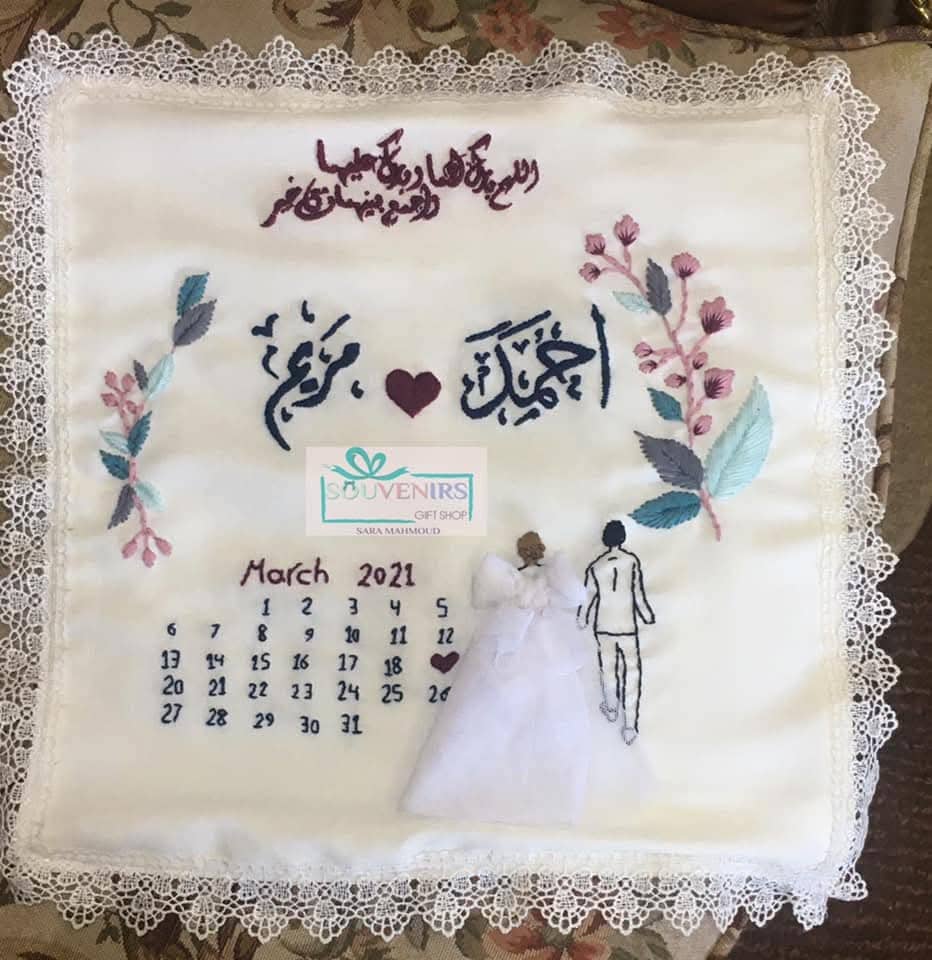 اللهم بارك لهما وبارك عليهما
واجمع بينهما في خير
احمد مريم
SOUVENIRS
GIFT SHOP
SARA MAHMOUD
March 2021
1 2 3 4 5
6 7 8 9 10 11 12
13 14 15 16 17 18
20 21 22 23 24 25 26
27 28 29 30 31